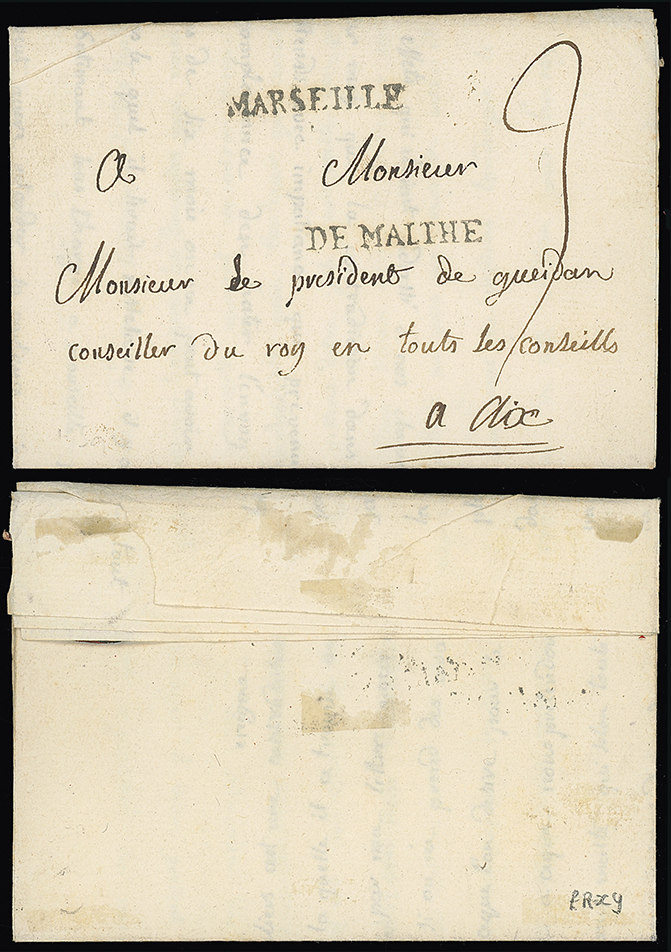 MARSEILLE
A Monsieur
DE MALTHE
Monsieur le president de gueidan
conseiller du roy en touts les conseills
a Aix